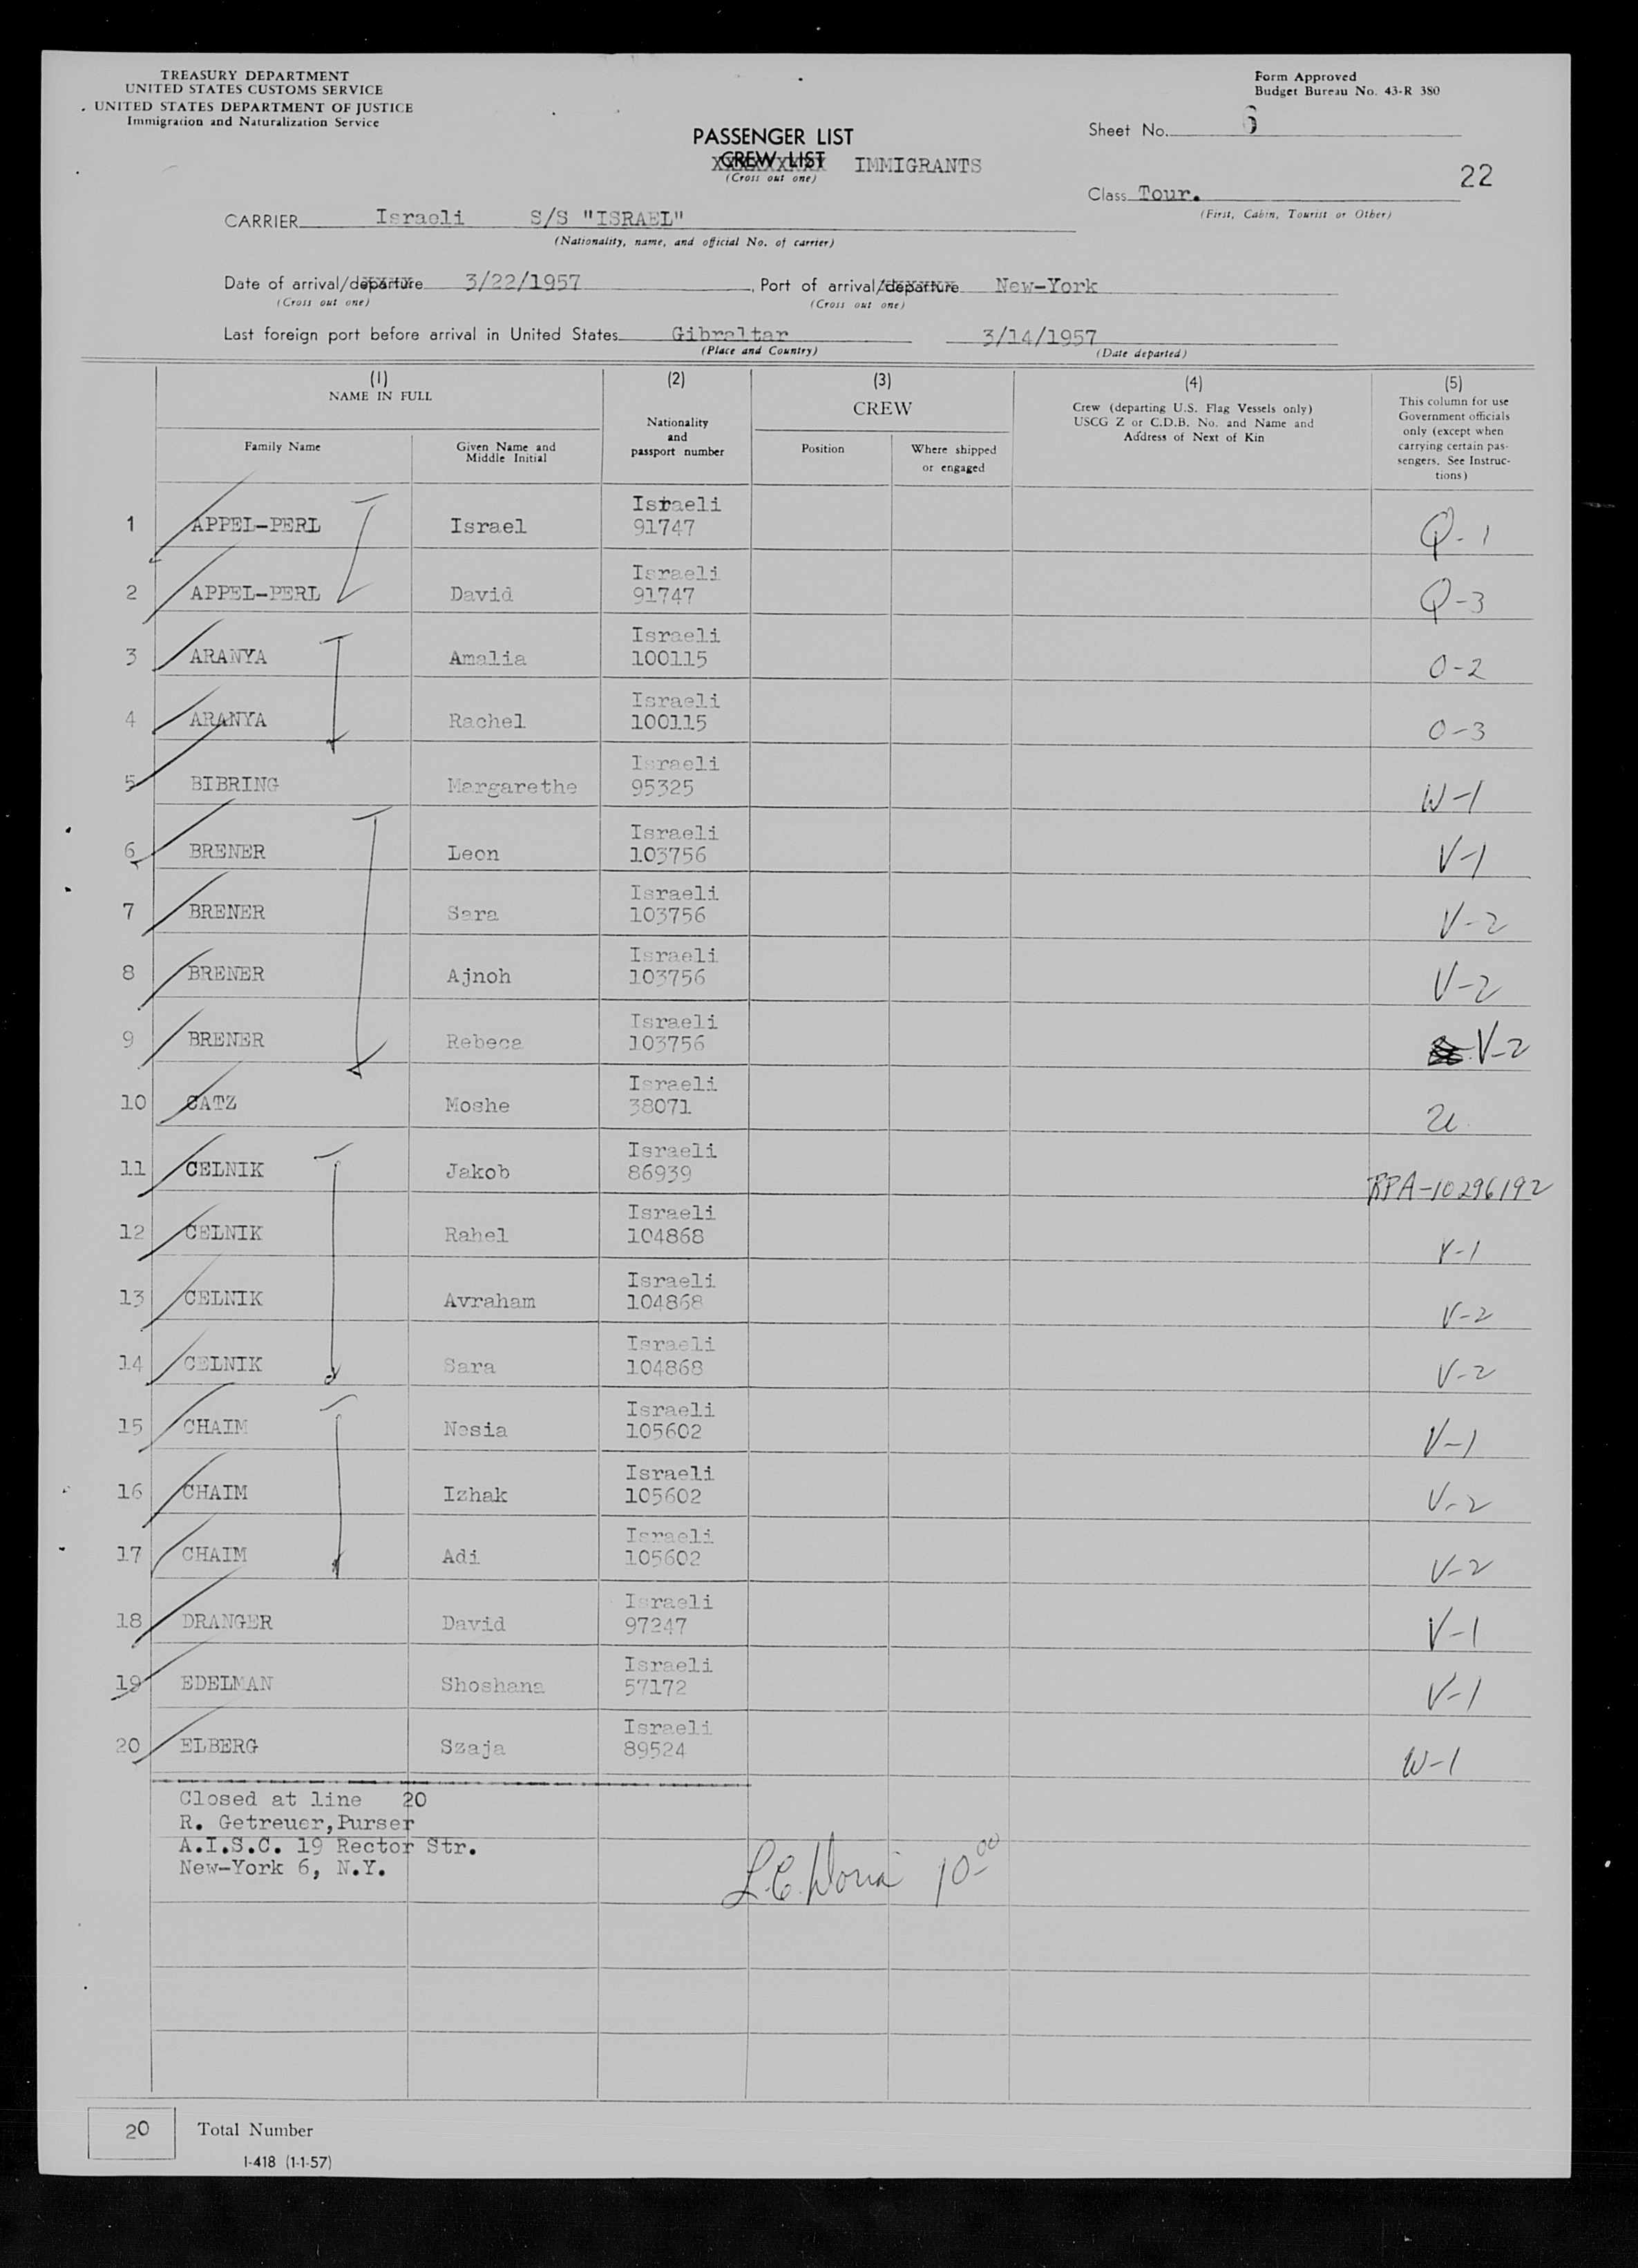 TREASURY DEPARTMENT
UNITED STATES CUSTOMS SERVICE
UNITED STATES DEPARTMENT OF JUSTICE
Immigration and Naturalization Service
Form Approved
Budget Bureau No. 43-R 380
PASSENGER LIST
CREW LIST IMMIGRANTS
(Cross out one)
Sheet No. 6
22
Class Tour.
(First, Cabin, Tourist or Other)
CARRIER Israeli S/S "ISRAEL"
(Nationality, name, and official No. of carrier)
Date of arrival/departure 3/22/1957, Port of arrival/departure New-York
(Cross out one) (Cross out one)
Last foreign port before arrival in United States Gibraltar 3/14/1957
(Place and Country) (Date departed)
(1)
NAME IN FULL
Family Name
Given Name and
Middle Initial
(2)
Nationality
and
passport number
(3)
CREW
Position
Where shipped
or engaged
(4)
Crew (departing U.S. Flag Vessels only)
USCG Z or C.D.B. No. and Name and
Address of Next of Kin
(5)
This column for use
Government officials
only (except when
carrying certain pas-
sengers. See Instruc-
tions)
Israeli
1 APPEL-PERL Israel 91747 Q-1
Israeli
2 APPEL-PERL David 91747 Q-3
Israeli
3 ARANYA Amalia 100115 O-2
Israeli
4 ARANYA Rachel 100115 O-3
Israeli
5 BIBRING Margarethe 95325 W-1
Israeli
6 BRENER Leon 103756 V-1
Israeli
7 BRENER Sara 103756 V-2
Israeli
8 BRENER Ajnoh 103756 V-2
Israeli
9 BRENER Rebeca 103756 V-2
Israeli
10 CATZ Moshe 38071
Israeli
11 CELNIK Jakob 86939 RPA-10296192
Israeli
12 CELNIK Rahel 104868 V-1
Israeli
13 CELNIK Avraham 104868 V-2
Israeli
14 CELNIK Sara 104868 V-2
Israeli
15 CHAIM Nesia 105602 V-1
Israeli
16 CHAIM Izhak 105602 V-2
Israeli
17 CHAIM Adi 105602 V-2
Israeli
18 DRANGER David 97247 V-1
Israeli
19 EDELMAN Shoshana 57172 V-1
Israeli
20 ELBERG Szaja 89524 W-1
Closed at line 20
R. Getreuer, Purser
A.I.S.C. 19 Rector Str.
New-York 6, N.Y.
L.C. 10-00
20 Total Number
I-418 (1-1-57)